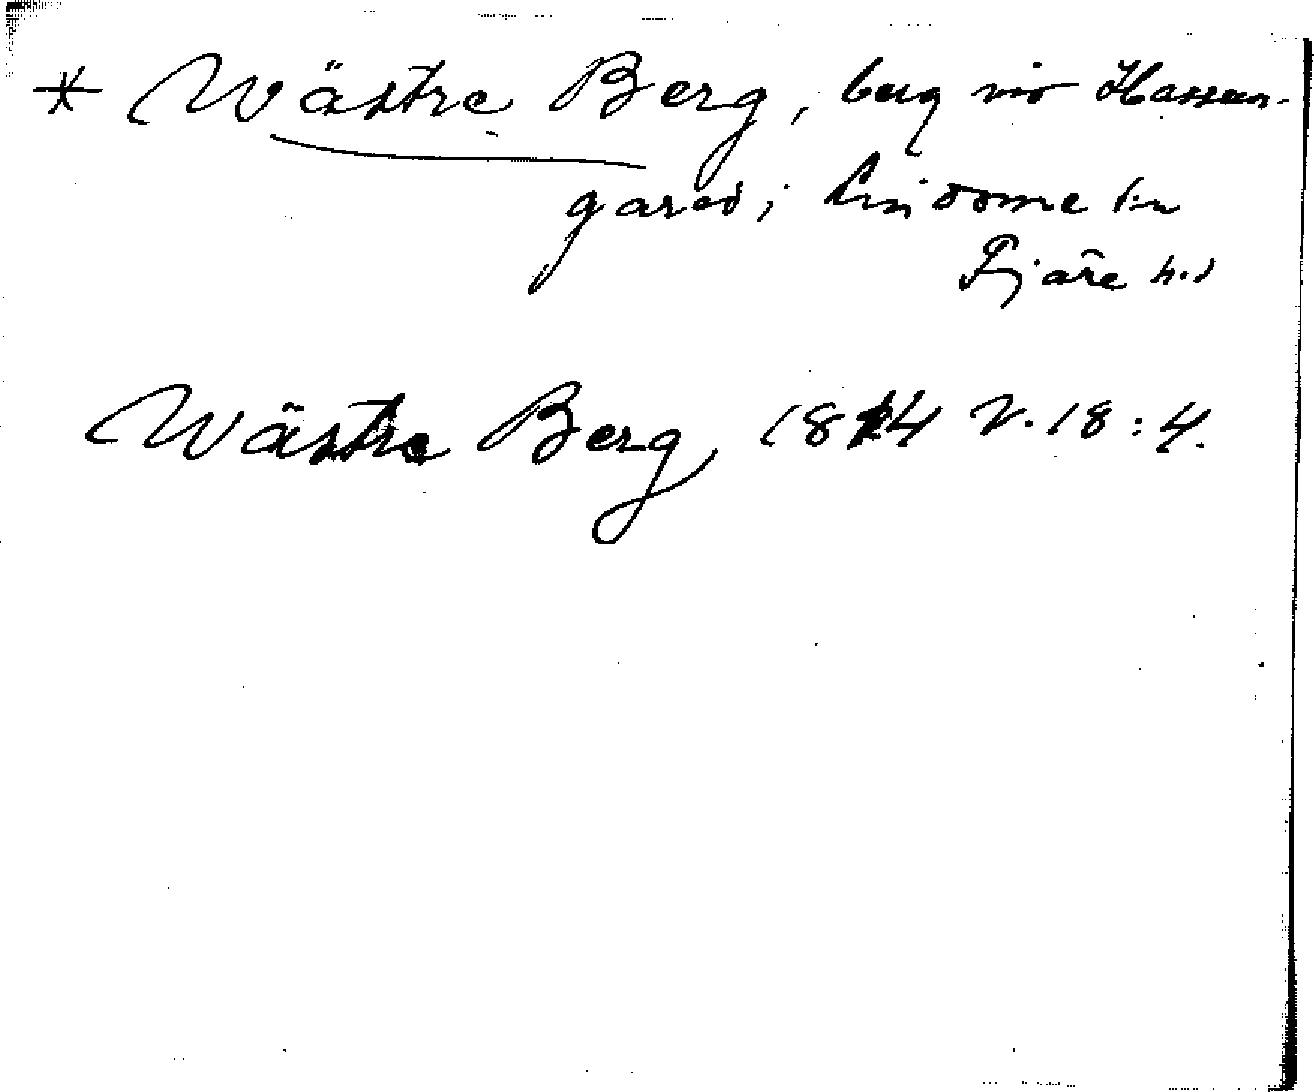 * Wästre Berg, berg vid Hassun-
gared; Lindome sn
Fjäre hd
Wästre Berg 1814 V. 18:4.